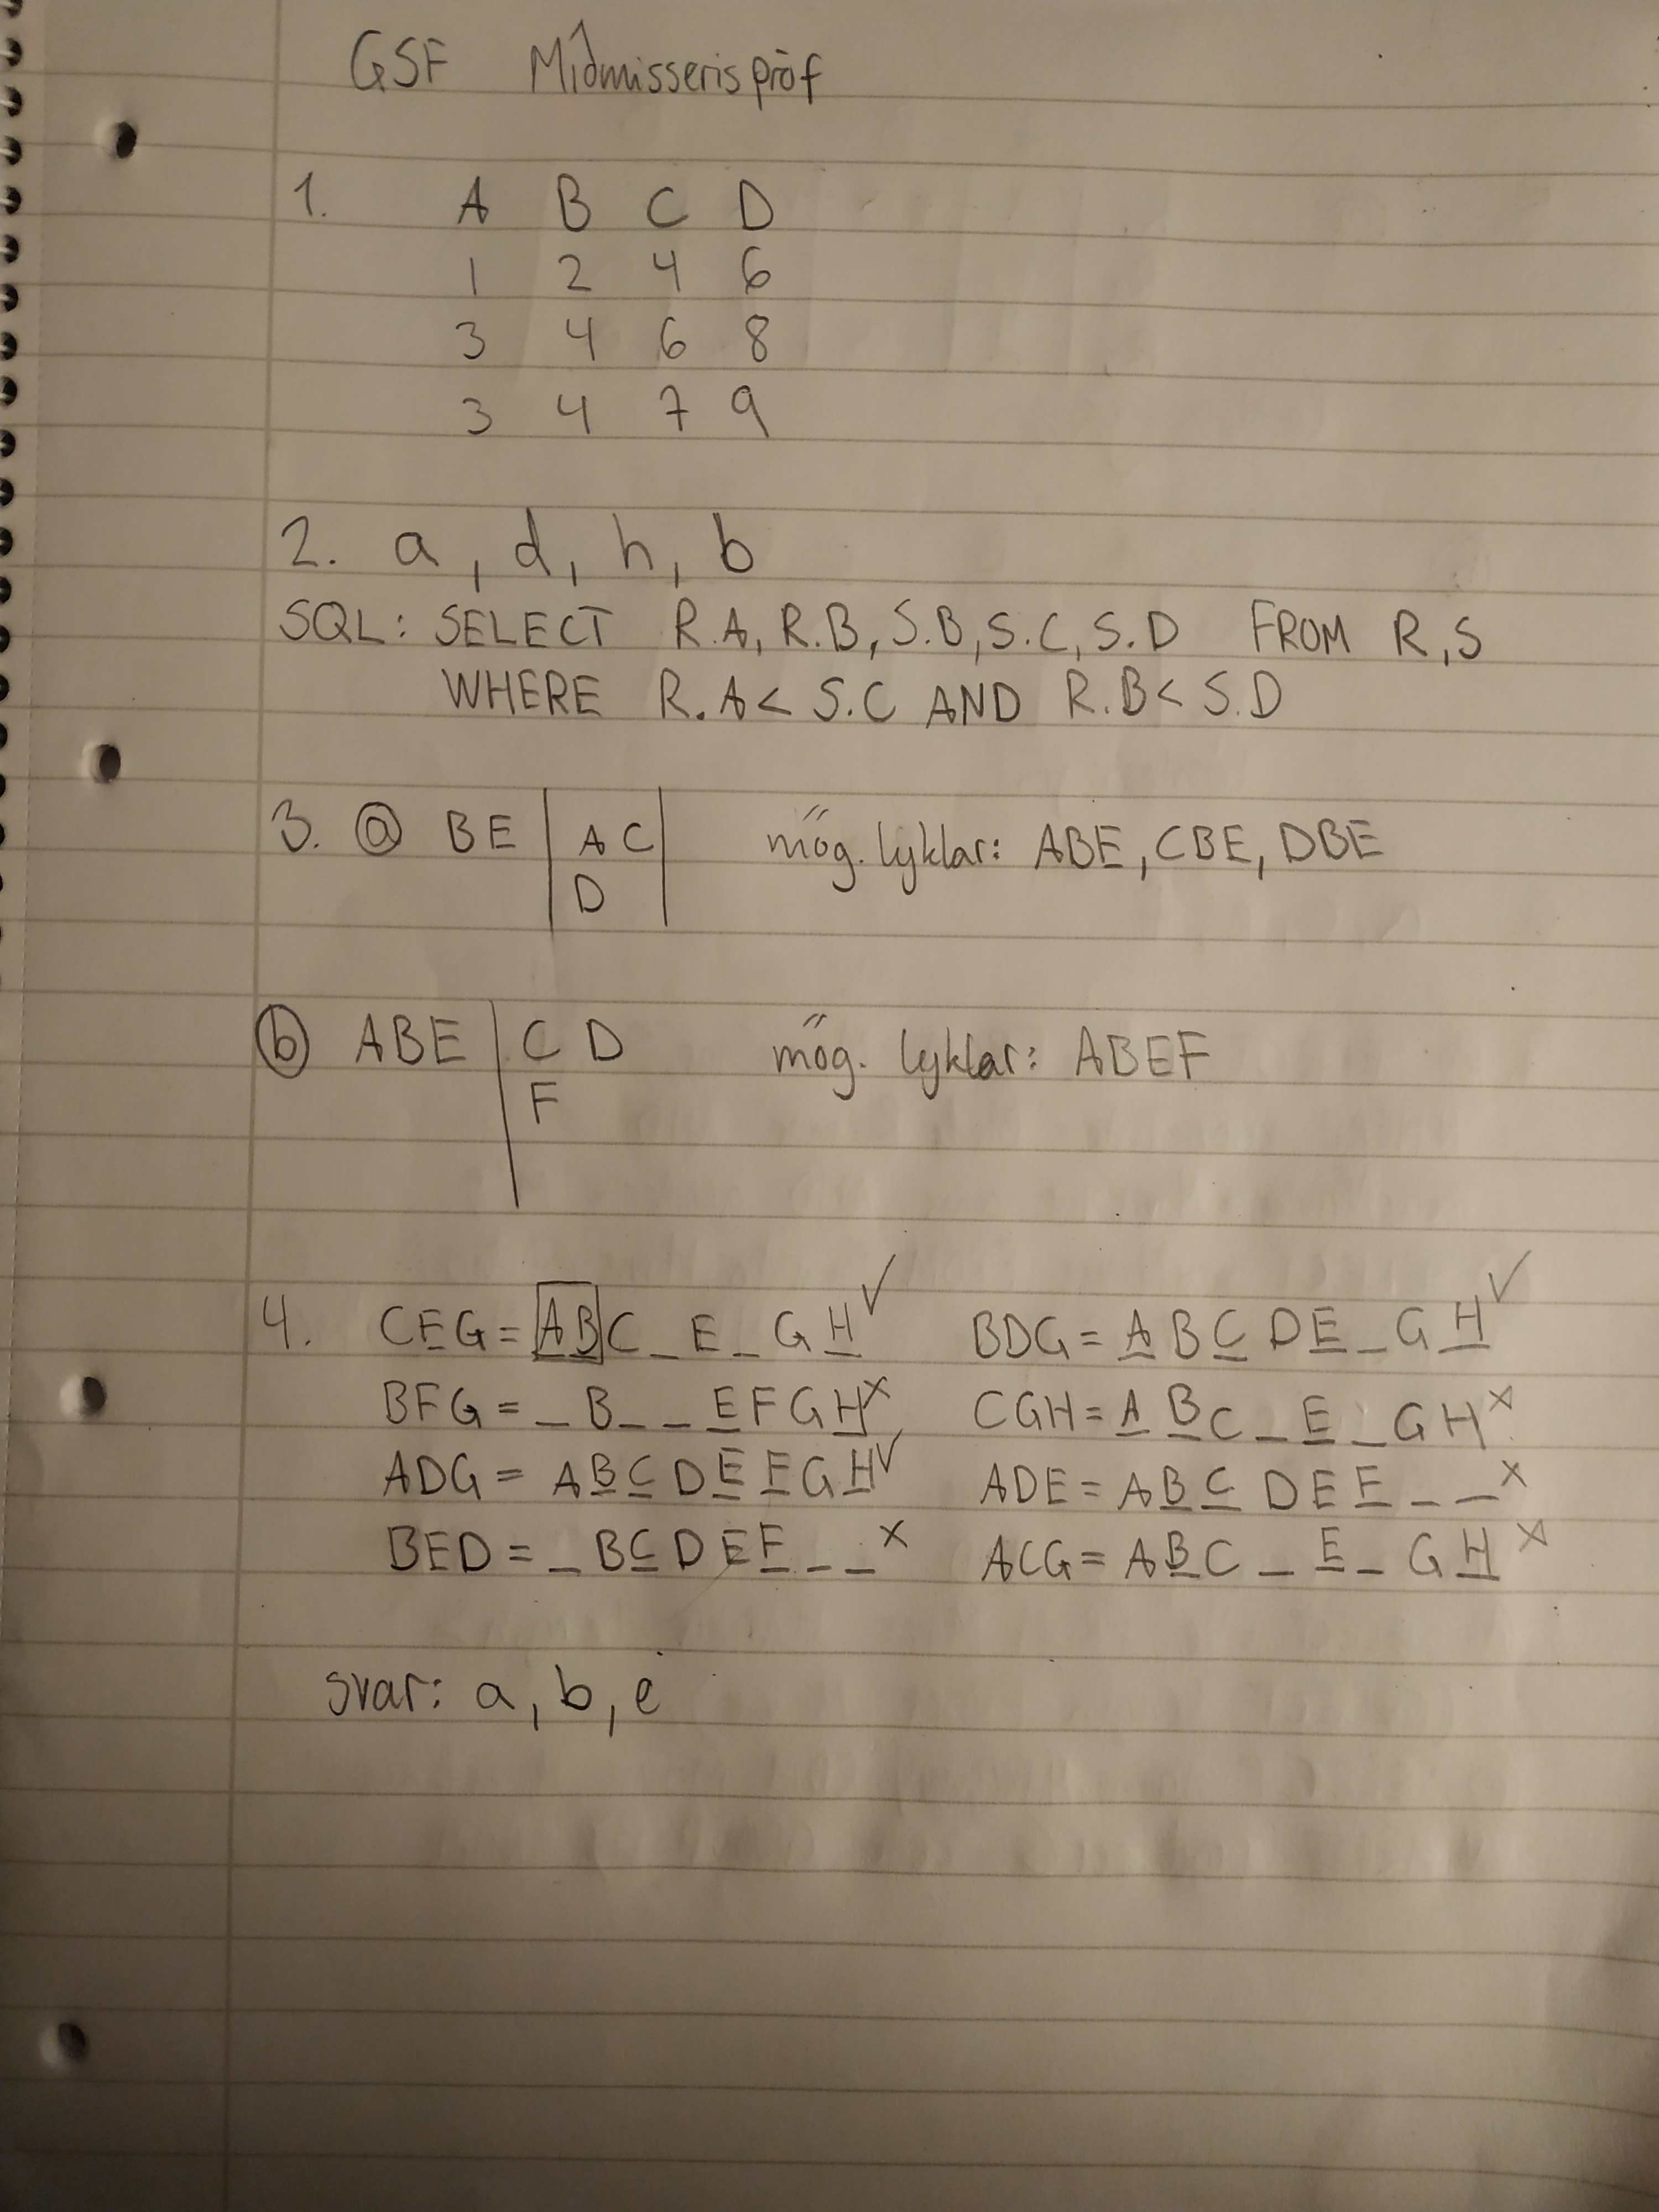 GSF Miðmisserispróf
1. A B C D
1 2 4 6
3 4 6 8
3 4 7 9
2. a, d, h, b
SQL: SELECT R.A, R.B, S.B, S.C, S.D FROM R,S
WHERE R.A < S.C AND R.B < S.D
3. a BE | A C | mög. lyklar: ABE, CBE, DBE
D
b ABE | C D mög. lyklar: ABEF
F
4. CEG = ABC_E_GH ✓ BDG = ABCDE_GH ✓
BFG = _B__EFGH x CGH = ABC_E_GH x
ADG = ABCDEFGH ✓ ADE = ABCDEF__ x
BED = _BCDEF__ x ACG = ABC_E_GH x
svar: a, b, e